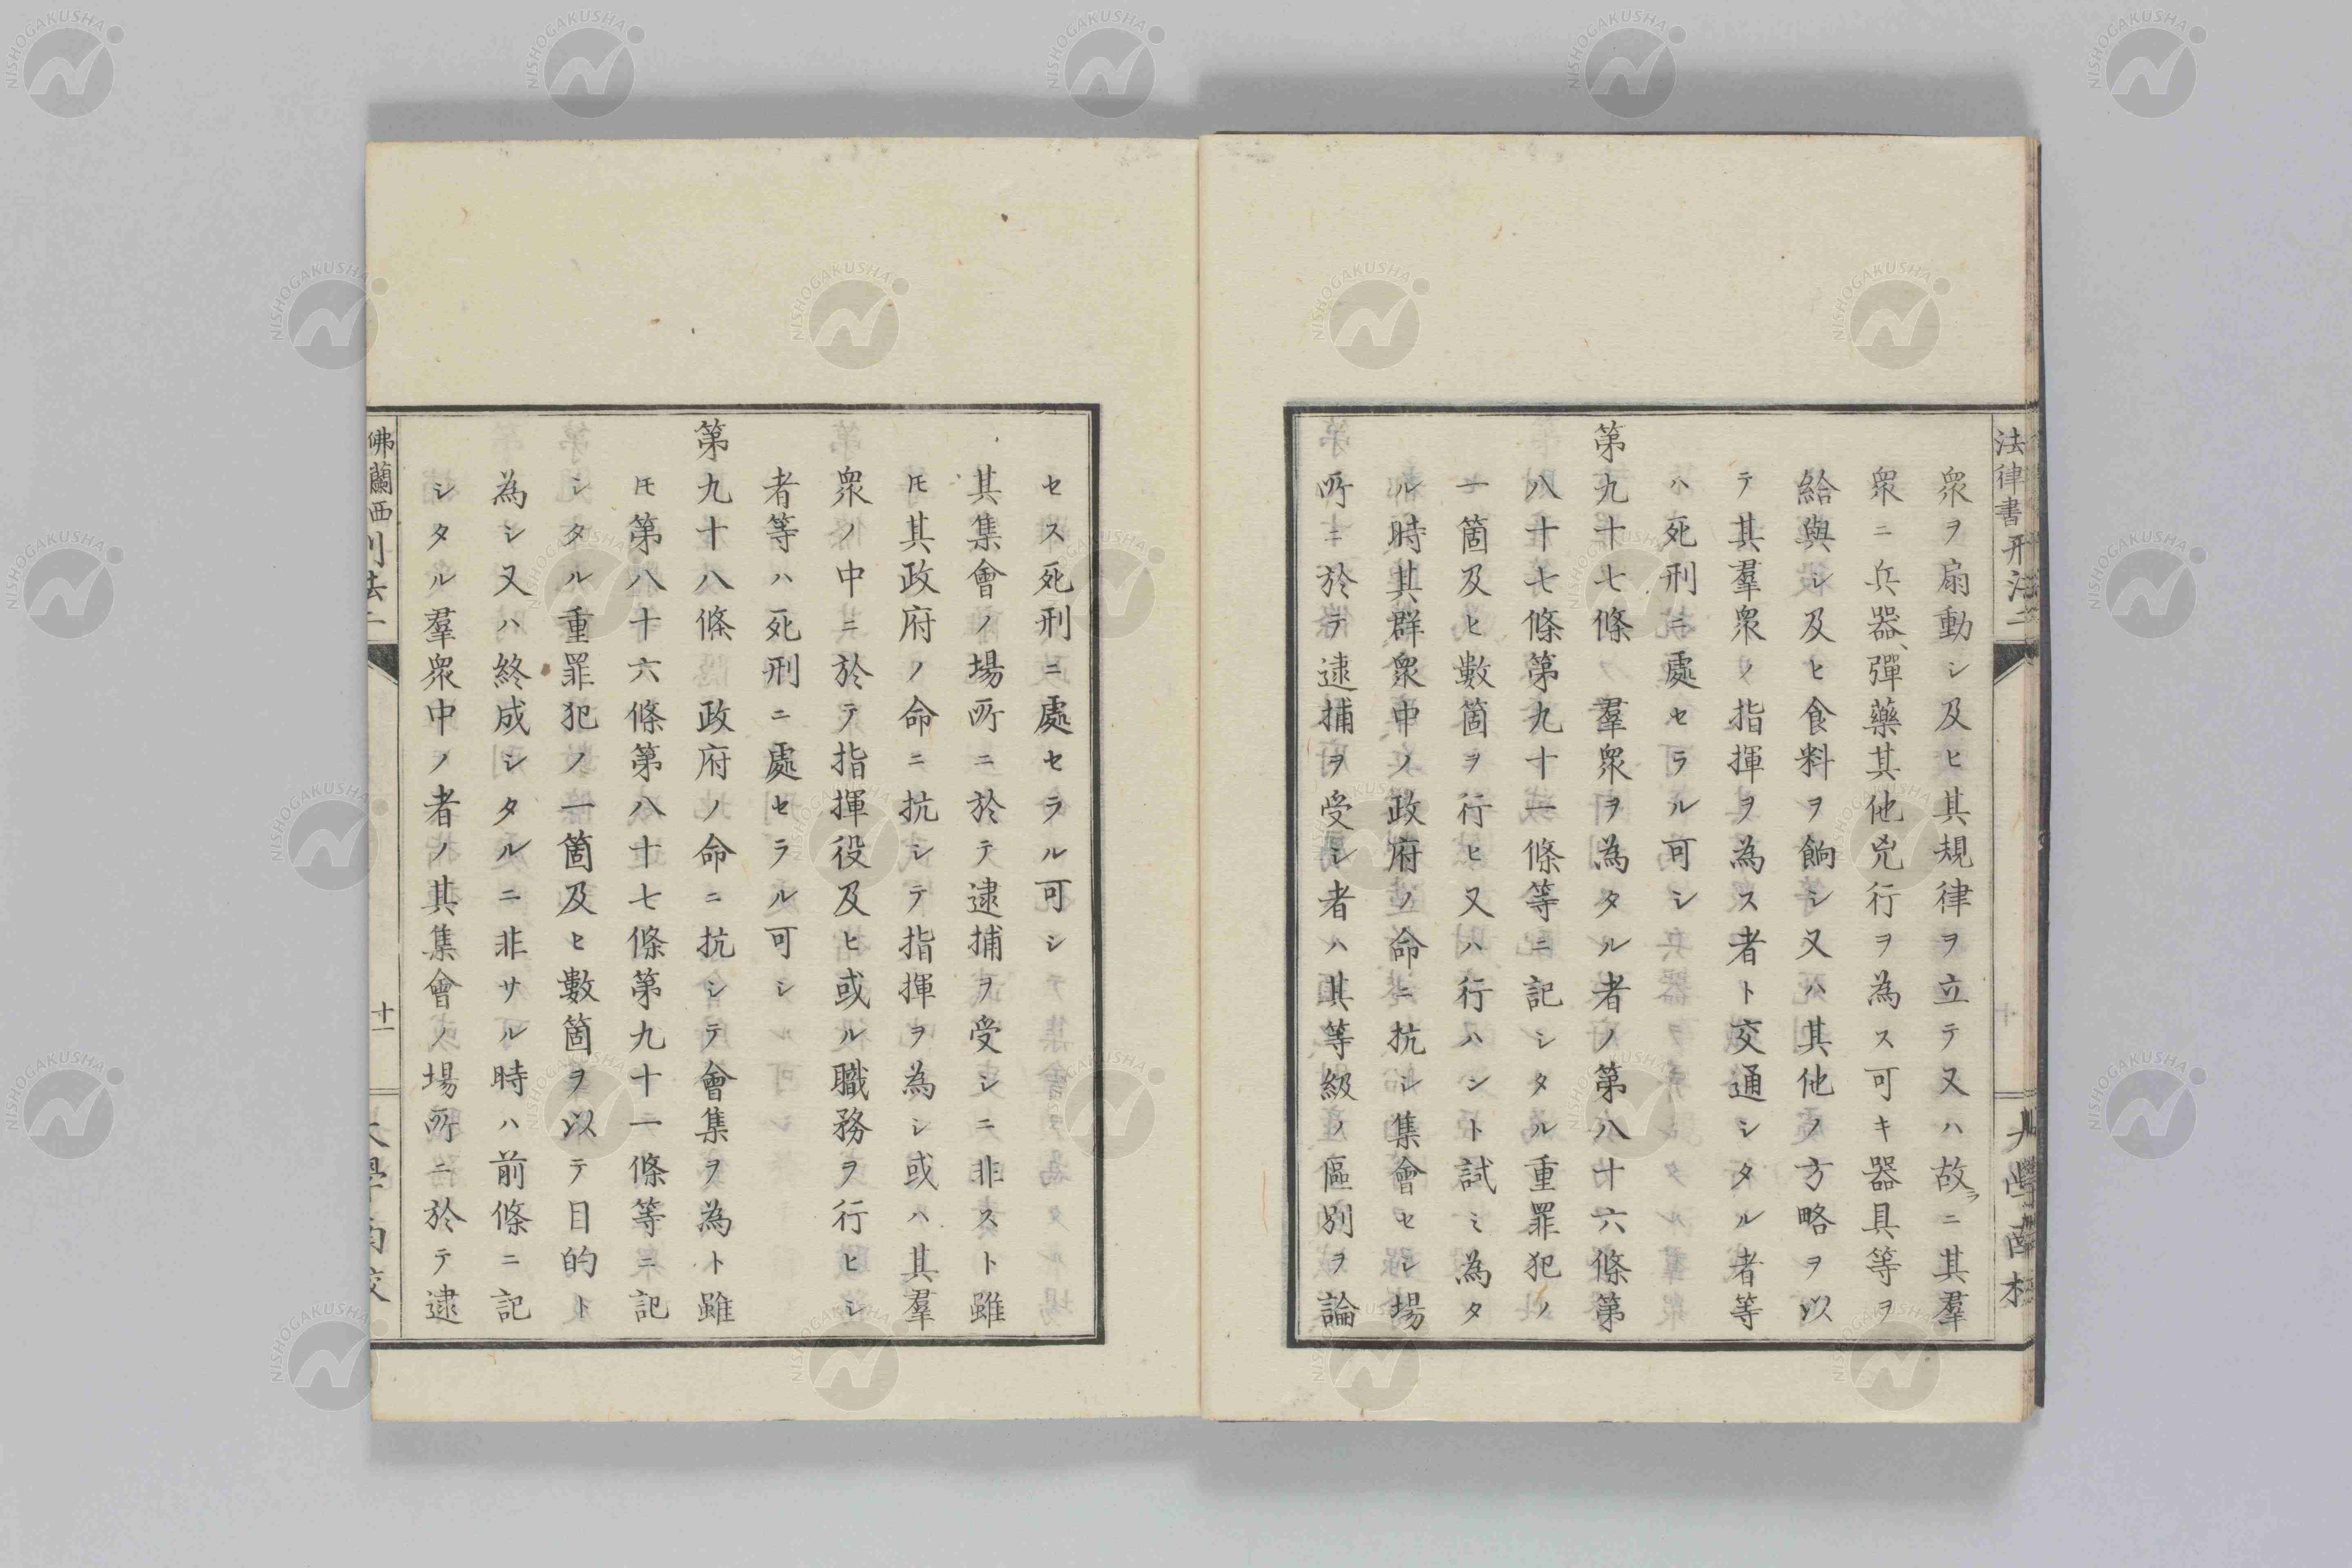 法律書刑法二
衆ヲ扇動シ及ヒ其規律ヲ立テ又ハ故ラニ其羣
衆ニ兵器、彈藥其他兇行ヲ為ス可キ器具等ヲ
給與シ及ヒ食料ヲ餉シ又ハ其他ノ方略ヲ以
テ其羣衆ノ指揮ヲ為ス者ト交通シタル者等
ハ死刑ニ處セラル可シ
第九十七條　羣衆ヲ為タル者ノ第八十六條第
八十七條第九十一條等ニ記シタル重罪犯ノ
一箇及ヒ數箇ヲ行ヒ又ハ行ハント試ミ為タ
ル時其群衆中ノ政府ノ命ニ抗シ集會セシ場
所ニ於テ逮捕ヲ受シ者ハ其等級ノ區別ヲ論
セス死刑ニ處セラル可シ
其集會ノ場所ニ於テ逮捕ヲ受シニ非スト雖
𪜈其政府ノ命ニ抗シテ指揮ヲ為シ或ハ其羣
衆ノ中ニ於テ指揮役及ヒ或ル職務ヲ行ヒシ
者等ハ死刑ニ處セラル可シ
第九十八條　政府ノ命ニ抗シテ會集ヲ為ト雖
𪜈第八十六條第八十七條第九十一條等ニ記
シタル重罪犯ノ一箇及ヒ數箇ヲ以テ目的ト
為シ又ハ終成シタルニ非サル時ハ前條ニ記
シタル羣衆中ノ者ノ其集會ノ場所ニ於テ逮
佛蘭西刑法二
十一
大學南校
NISHOGAKUSHA